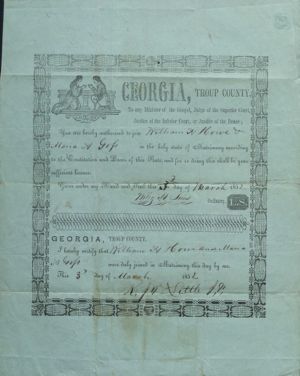 GEORGIA, TROUP COUNTY.
To any Minister of the Gospel, Judge of the Superior Court,
Justice of the Inferior Court, or Justice of the Peace;
You are hereby authorized to join William H Howe &
Maria A Goss in the holy state of Matrimony according
to the Constitution and Laws of this State, and for so doing this shall be your
sufficient license.
Given under my Hand and Seal this 3d day of March 1852
Ordinary. L.S.
GEORGIA, TROUP COUNTY.
I hereby certify that William H Howe and Maria
A Goss were duly joined in Matrimony this day by me.
This 3d Day of March 1852
Little